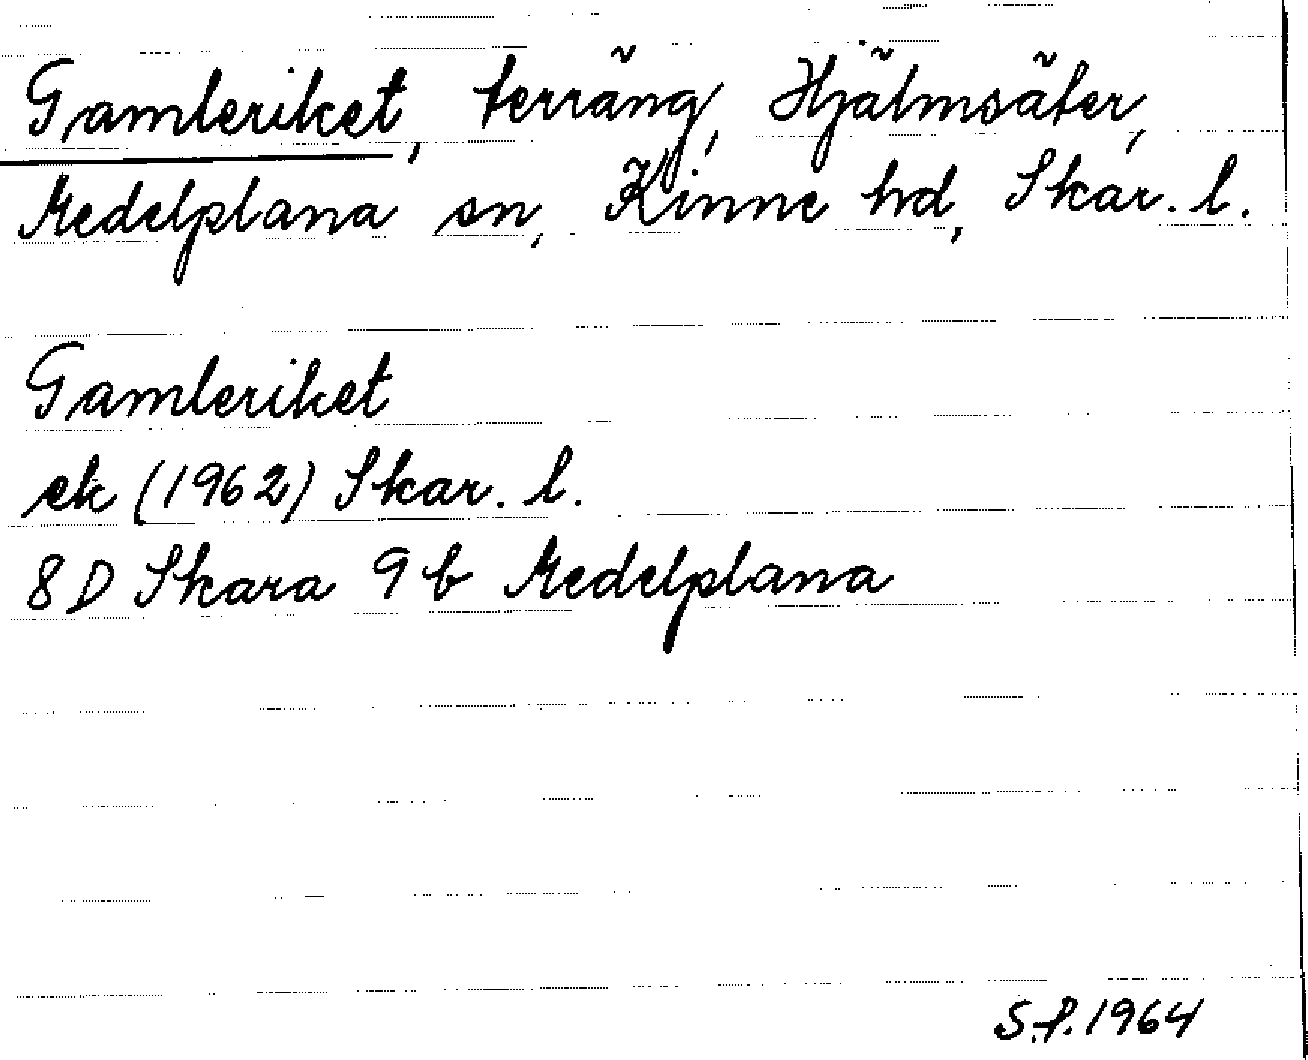 Gamleriket, terräng, Hjälmsäter,
Medelplana sn, Kinne hd, Skar. l.
Gamleriket
ek (1962) Skar. l.
8D Skara 9b Medelplana
S.f. 1964